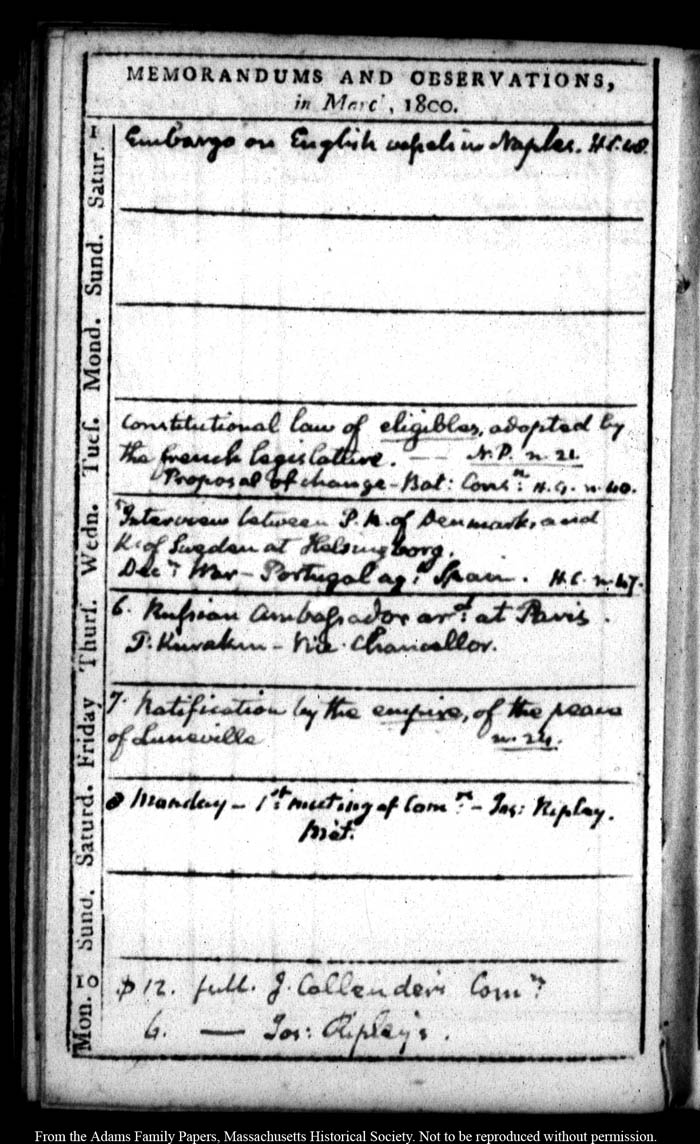 MEMORANDUMS AND OBSERVATIONS,
in Marc', 1800.
1
Satur.
Embargo on English vessels in Naples. H.C. 48.
Sund.
Mond.
Tues.
Constitutional law of eligibles, adopted by
the french legislature. — N.P. n. 21
Proposal of change - Bat: Consn: H.G. n. 40.
Wedn.
Interview between P.R. of Denmark, and
K. of Sweden at Helsingborg.
Decn War - Portugal agt Spain. H.C. n. 47.
Thurs.
6. Russian Ambassador ard: at Paris.
P. Kurakin - Vice Chancellor.
Friday
7. Ratification by the empire, of the peace
of Luneville n. 24.
Saturd.
8 Monday - 1st: meeting of Comrs: - Jas: Ripley.
Met.
Sund.
Mon. 10
$ 12. full. J. Callender's Comn:
6. — Jos: Ripley's.
From the Adams Family Papers, Massachusetts Historical Society. Not to be reproduced without permission.